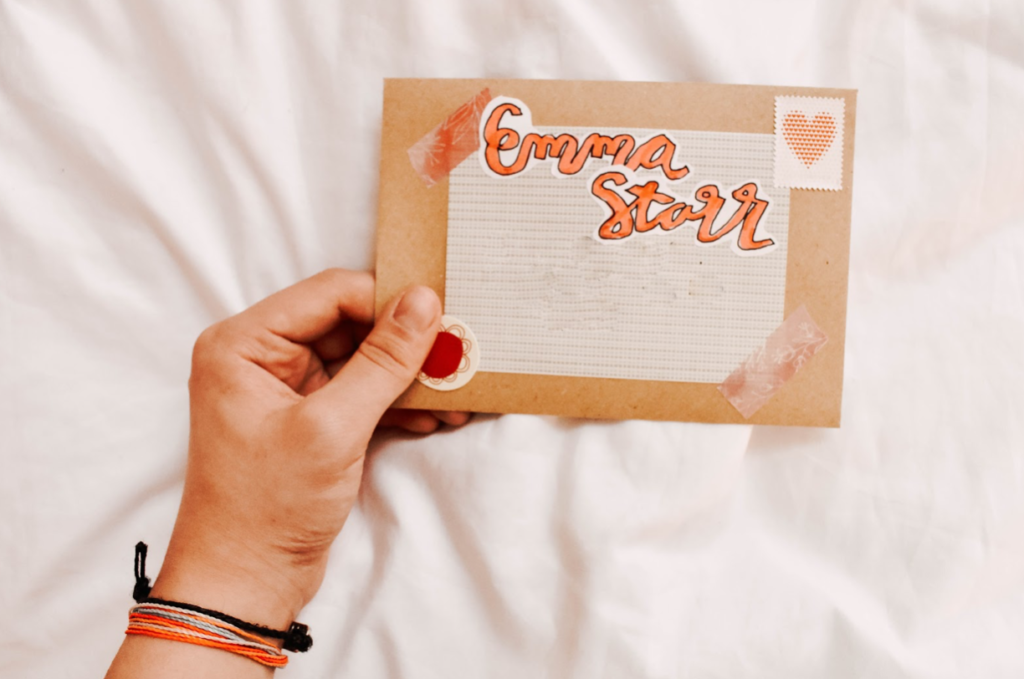 Emma
Starr